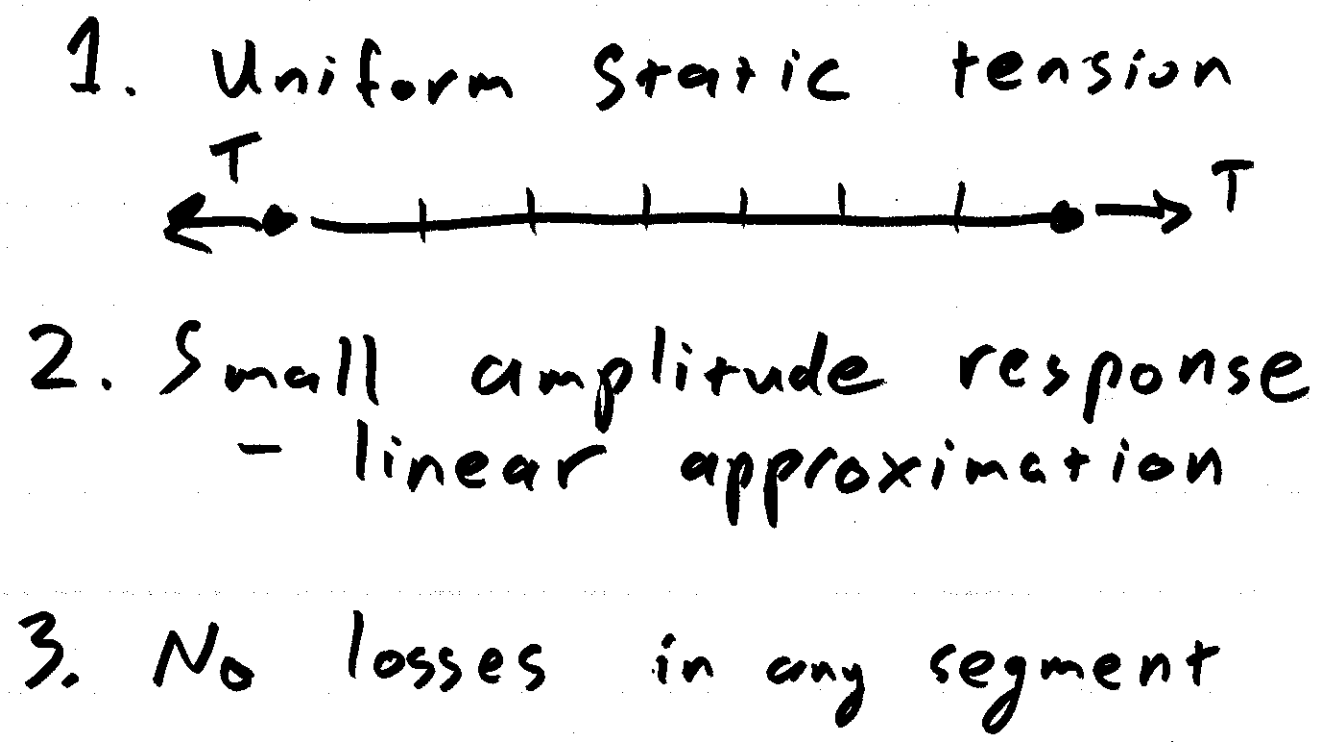 1. Uniform static tension
T T
2. Small amplitude response
- linear approximation
3. No losses in any segment